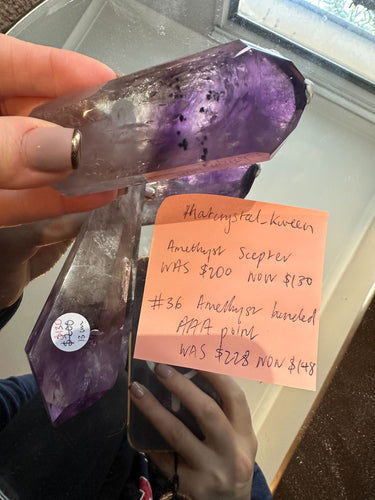 thatcrystal_kween
Amethyst Scepter
WAS $200 NOW $130
#36 Amethyst banded
AAA point
WAS $228 NOW $148
$200